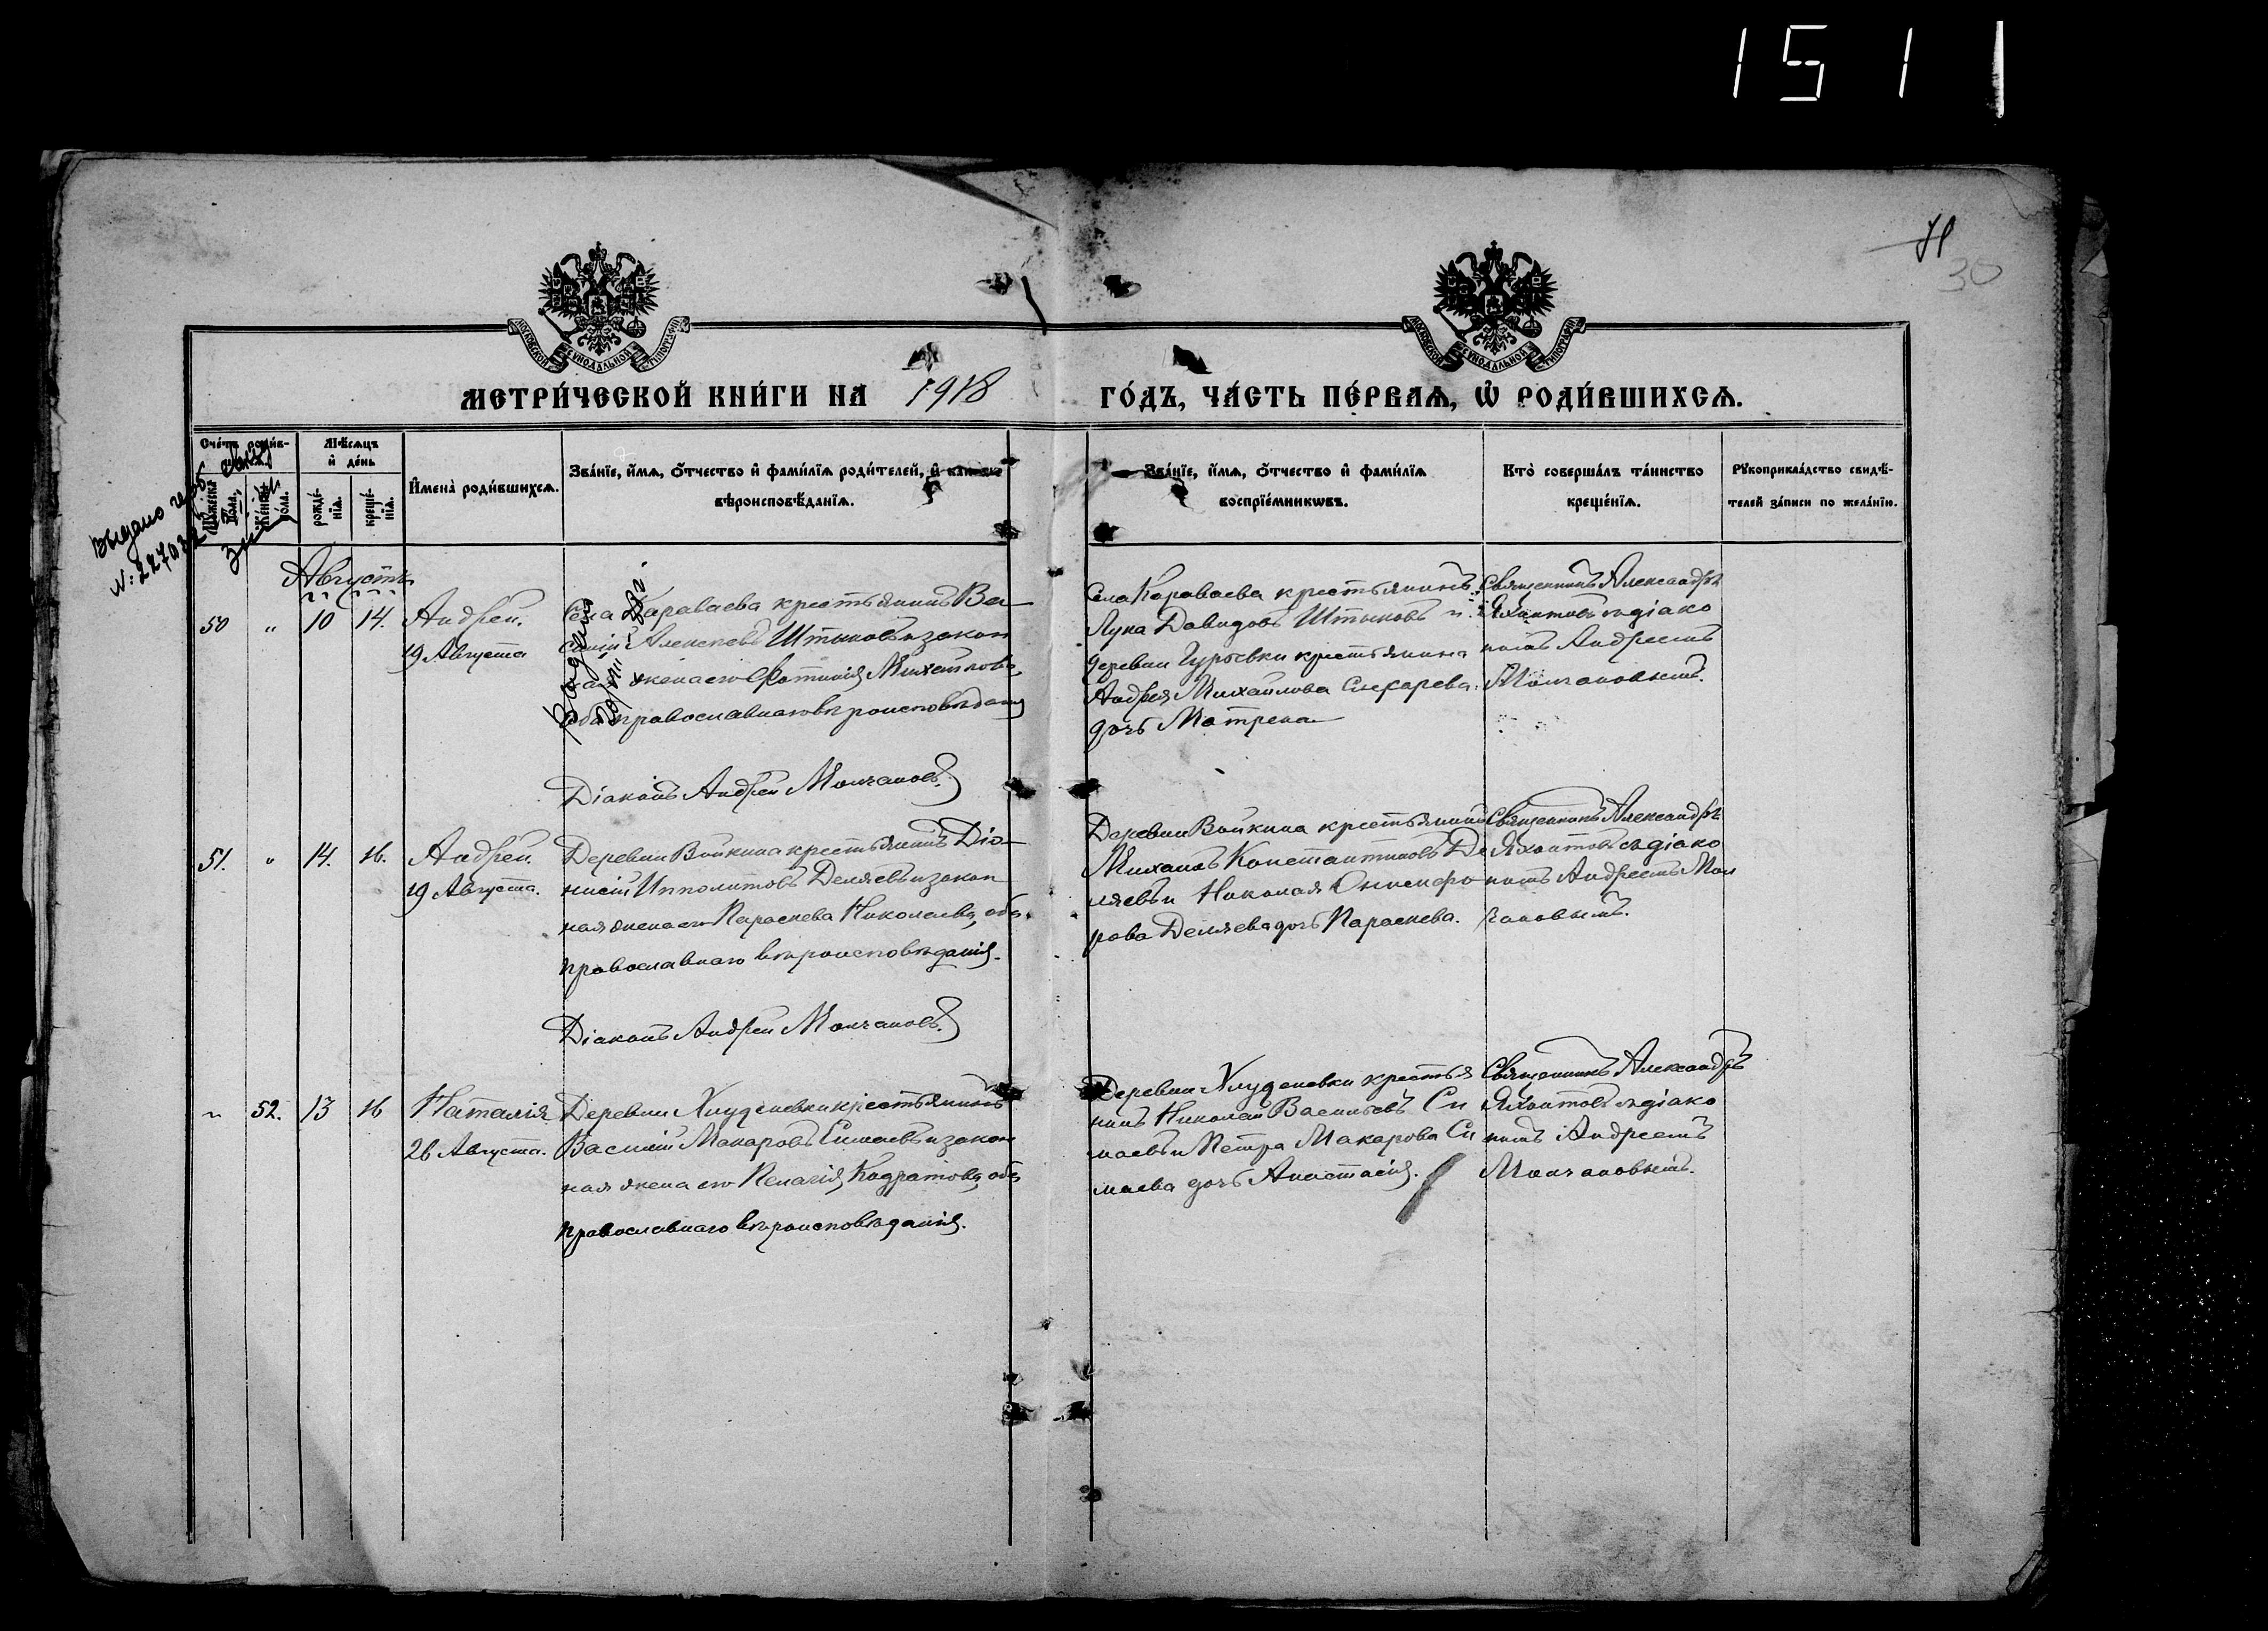 1511
30
МОСКОВСКОЙ СѴНОДАЛЬНОЙ ТИПОГРАФІИ
МОСКОВСКОЙ СѴНОДАЛЬНОЙ ТИПОГРАФІИ
МЕТРИ́ЧЕСКОЙ КНИ́ГИ НА 1918 ГО́ДЪ, ЧА́СТЬ ПЕ́РВАѦ, Ѡ҆ РОДИ́ВШИХСѦ.
Сче́тъ роди́в-
Мѣ́сѧцъ
и҆ де́нь
Мꙋ́жеска
по́ла.
Же́нска
по́ла.
рожде́-
нїѧ.
креще́-
нїѧ.
И҆мена̀ роди́вшихсѧ.
Зва́нїе, и҆́мѧ, ѻ҆́тчество и҆ фами́лїѧ роди́телей, и҆
вѣроисповѣ́данїѧ.
Зва́нїе, и҆́мѧ, ѻ҆́тчество и҆ фами́лїѧ
воспрїе́мникѡвъ.
Кто̀ соверша́лъ та́инство
креще́нїѧ.
Рꙋкоприкла́дство свидѣ́-
телей за́писи по жела́нїю.
Выдано
Августъ
50 " 10 14. Андрей.
19 Августа
Села Караваева крестьянинъ Ва-
силій Алексѣевъ Штыковъ и закон
ная жена его Фотинія Михайлова,
оба православнаго вѣроисповѣданія
Діаконъ Андрей Молчановъ.
Села Караваева крестьянинъ
Лука Давидовъ Штыковъ и
деревни Гурьевки крестьянина
Андрея Михаилова Слесарева
дочь Матрена
Священникъ Александръ
Яхонтовъ съ діако
номъ Андреемъ
Молчановымъ.
51. " 14. 16. Андрей.
19 Августа.
Деревни Войкина крестьянинъ Діо-
нисій Ипполитовъ Деляевъ и закон
ная жена его Параскева Николаева, оба
православнаго вѣроисповѣданія.
Діаконъ Андрей Молчановъ.
Деревни Войкина крестьянинъ
Михаилъ Константиновъ Де
ляевъ и Николая Онисифо
рова Деляева дочь Параскева.
Священникъ Александръ
Яхонтовъ съ діако
номъ Андреемъ Мол
чановымъ.
" 52. 13 16 Наталія
26 Августа.
Деревни Хлуденевки крестьянинъ
Василій Макаровъ Симаевъ и закон
ная жена его Пелагія Кодратова, оба
православнаго вѣроисповѣданія.
Деревни Хлуденевки крестья
нинъ Николай Васильевъ Си
маевъ и Петра Макарова Си
маева дочь Анастасія.
Священникъ Александръ
Яхонтовъ съ діако
номъ Андреемъ
Молчановымъ.